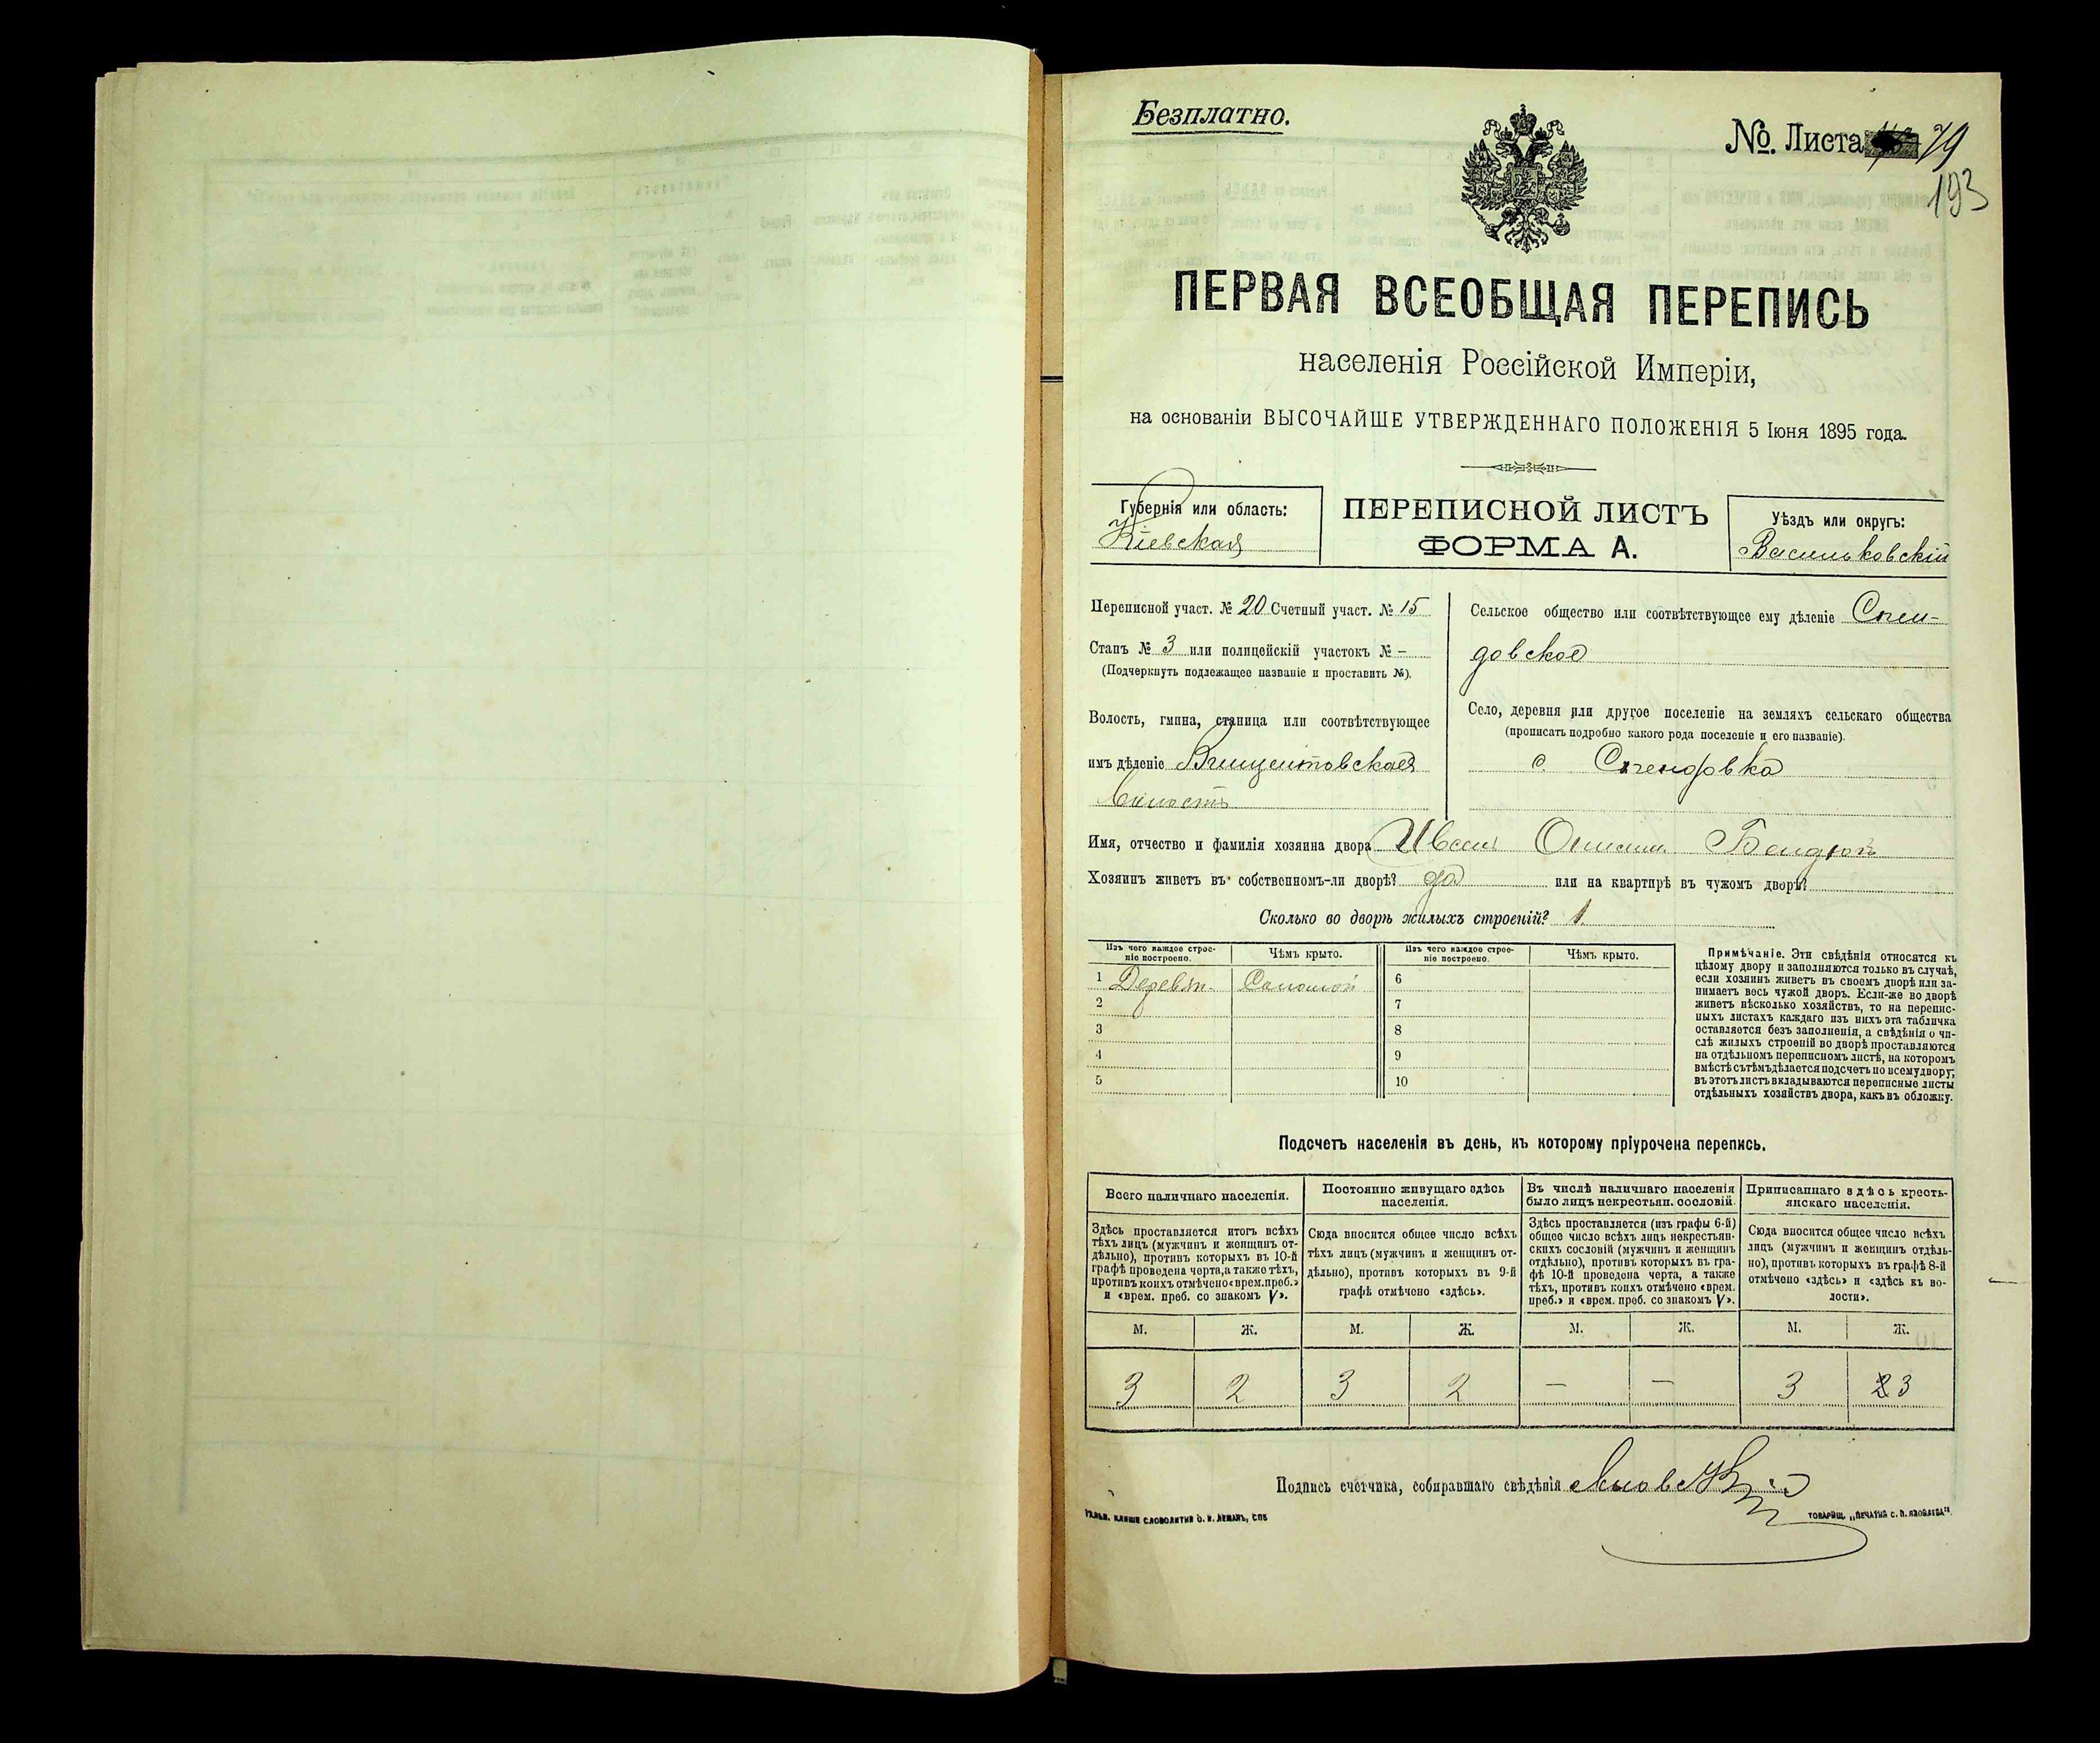 Безплатно.
№. Листа 79
193
ПЕРВАЯ ВСЕОБЩАЯ ПЕРЕПИСЬ
населенія Россійской Имперіи,
на основаніи ВЫСОЧАЙШЕ УТВЕРЖДЕННАГО ПОЛОЖЕНІЯ 5 Іюня 1895 года.
Губернія или область:
Кіевская
ПЕРЕПИСНОЙ ЛИСТЪ
ФОРМА А.
Уѣздъ или округъ:
Васильковскій
Переписной участ. № 20 Счетный участ. № 15
Станъ № 3 или полицейскій участокъ № –
(Подчеркнуть подлежащее названіе и проставить №).
Волость, гмина, станица или соотвѣтствующее
имъ дѣленіе Винцентовская
волость
Сельское общество или соотвѣтствующее ему дѣленіе
довское
Село, деревня или другое поселеніе на земляхъ сельскаго общества
(прописать подробно какого рода поселеніе и его названіе).
с.
Имя, отчество и фамилія хозяина двора Иван
Хозяинъ живетъ въ собственномъ-ли дворѣ? да или на квартирѣ въ чужомъ дворѣ?
Сколько во дворѣ жилыхъ строеній? 1.
Изъ чего каждое строе-
ніе построено.
Чѣмъ крыто.
Изъ чего каждое строе-
ніе построено.
Чѣмъ крыто.
1 Деревян. Соломой 6
2 7
3 8
4 9
5 10
Примѣчаніе. Эти свѣдѣнія относятся къ
цѣлому двору и заполняются только въ случаѣ,
если хозяинъ живетъ въ своемъ дворѣ или за-
нимаетъ весь чужой дворъ. Если-же во дворѣ
живетъ нѣсколько хозяйствъ, то на перепис-
ныхъ листахъ каждаго изъ нихъ эта табличка
оставляется безъ заполненія, а свѣдѣнія о чи-
слѣ жилыхъ строеній во дворѣ проставляются
на отдѣльномъ переписномъ листѣ, на которомъ
вмѣстѣ съ тѣмъ дѣлается подсчетъ по всему двору;
въ этотъ листъ вкладываются переписные листы
отдѣльныхъ хозяйствъ двора, какъ въ обложку.
Подсчетъ населенія въ день, къ которому пріурочена перепись.
Всего наличнаго населенія.
Здѣсь проставляется итогъ всѣхъ
тѣхъ лицъ (мужчинъ и женщинъ от-
дѣльно), противъ которыхъ въ 10-й
графѣ проведена черта, а также тѣхъ,
противъ коихъ отмѣчено «врем. преб.»
и «врем. преб. со знакомъ V».
Постоянно живущаго здѣсь
населенія.
Сюда вносится общее число всѣхъ
тѣхъ лицъ (мужчинъ и женщинъ от-
дѣльно), противъ которыхъ въ 9-й
графѣ отмѣчено «здѣсь».
Въ числѣ наличнаго населенія
было лицъ некрестьян. сословій.
Здѣсь проставляется (изъ графы 6-й)
общее число всѣхъ лицъ некрестьян-
скихъ сословій (мужчинъ и женщинъ
отдѣльно), противъ которыхъ въ гра-
фѣ 10-й проведена черта, а также
тѣхъ, противъ коихъ отмѣчено «врем.
преб.» и «врем. преб. со знакомъ V».
Приписаннаго здѣсь кресть-
янскаго населенія.
Сюда вносится общее число всѣхъ
лицъ (мужчинъ и женщинъ отдѣль-
но), противъ которыхъ въ графѣ 8-й
отмѣчено «здѣсь» и «здѣсь къ во-
лости».
М. Ж. М. Ж. М. Ж. М. Ж.
3 2 3 2 — — 3 2 3
Подпись счетчика, собиравшаго свѣдѣнія
ТОВАРИЩ. „ПЕЧАТНЯ С. П. ЯКОВЛЕВА“.